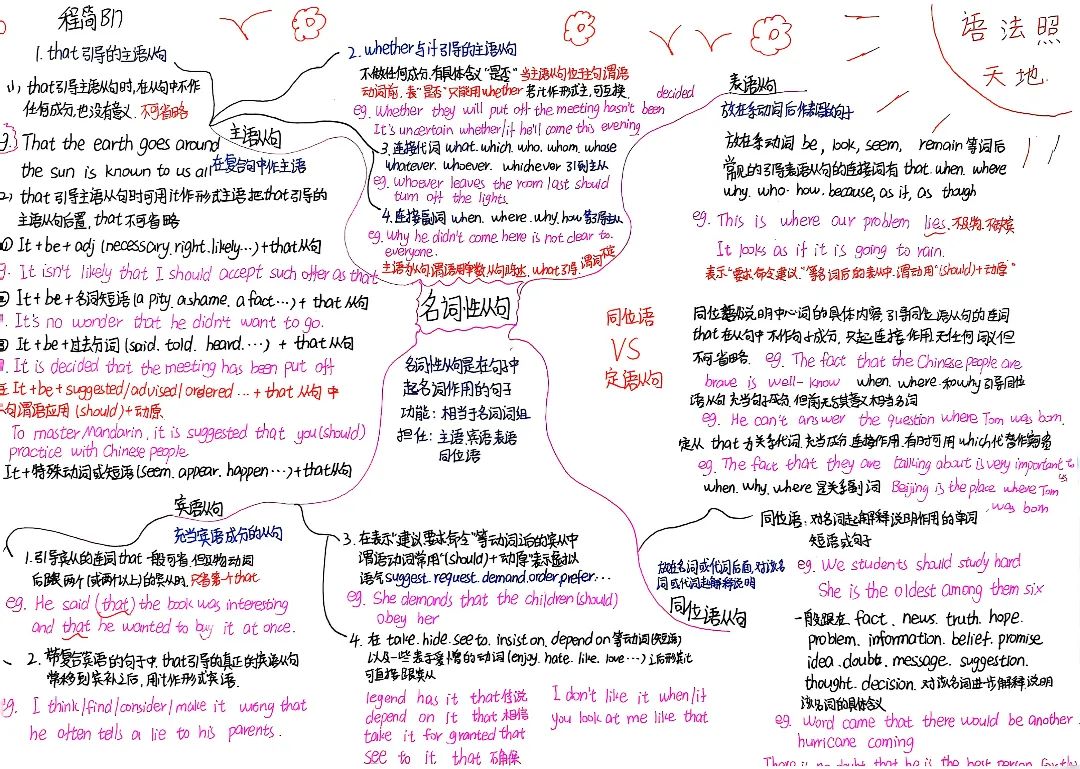 程简B17
语法照
天地.
1. that引导的主语从句
(1) that引导主语从句时,在从句中不作
任何成分,也没有意义. 不可省略
That the earth goes around
the sun is known to us all
that引导主语从句时可用it作形式主语把that引导的
主语从句后置, that不可省略
① It+be+adj (necessary. right. likely…)+that从句
It isn't likely that I should accept such offer as that
② It+be+名词短语(a pity. a shame. a fact…)+ that从句
It's no wonder that he didn't want to go.
③ It+be+过去分词 (said. told. heard.…) + that从句
It is decided that the meeting has been put off
It+be+suggested/advised/ordered…+that从句中
句谓语应用(should)+动原
To master Mandarin, it is suggested that you(should)
practice with Chinese people
It+特殊动词或短语(seem. appear. happen…)+that从句
主语从句
在复合句中作主语
2. whether与if引导的主语从句
不做任何成分.有具体含义"是否" 当主语从句位于句谓语
动词前,表"是否"只能用whether 若it作形式主,可互换.
eg. Whether they will put off the meeting hasn't been
decided
It's uncertain whether/if he'll come this evening
3. 连接代词 what. which. who. whom. whose
whatever. whoever. whichever 引导主从
eg. Whoever leaves the room last should
turn off the lights.
4. 连接副词 when. where. why. how 等引导主从
eg. Why he didn't come here is not clear to
everyone.
名词性从句
名词性从句是在句中
起名词作用的句子
功能: 相当于名词词组
担任: 主语 宾语 表语
同位语
表语从句
放在系动词 be, look, seem, remain等词后
常见的引导表语从句的连接词有 that. when. where
why. who. how. because, as if, as though
eg. This is where our problem lies.
It looks as if it is going to rain.
表示"要求.命令.建议."等名词后的表从中.谓动用"(should)+动原"
同位语
VS
定语从句
同位语说明中心词的具体内容,引导同位语从句的连词
that在从句中不作句子成分,只起连接作用,无任何词义但
不可省略. eg. The fact that the Chinese people are
brave is well-know when. where和why引导同位
语从句
eg. He can't answer the question where Tom was born
eg. The fact that they are talking about is very important to
us
when. why. where 是关系副词 Beijing is the place where Tom
was born
同位语: 对名词起解释说明作用的单词
短语或句子
eg. We students should study hard
She is the oldest among them six
放在名词或代词后面,对该名
词或代词起解释说明
同位语从句
一般跟在 fact. news. truth. hope.
problem. information. belief. promise
idea. doubt. message. suggestion.
thought. decision. 对该名词进步解释说明
该名词的具体含义
eg. Word came that there would be another
hurricane coming
There is no doubt that he is the best person for the
宾语从句
充当宾语成分的从句
1. 引导宾从的连词that一般可省
后跟两个(或两个以上)的宾从时,只省第一个that
eg. He said (that) the book was interesting
and that he wanted to buy it at once.
2. 带复合宾语的句子中,that引导的真正的宾语从句
常移到宾补之后,用it作形式宾语.
eg. I think/find/consider/make it wrong that
he often tells a lie to his parents.
3. 在表示"建议.要求.命令"等动词后的宾从中
谓语动词常用"(should)+动原"表示虚拟
语气suggest. request. demand. order. prefer…
eg. She demands that the children(should)
obey her
4. 在 take. hide. see to. insist on. depend on等动词(短语)
以及一些表示爱憎的动词(enjoy. hate. like. love…)之后
可直接跟宾从
legend has it that传说
depend on it that 相信
take it for granted that
see to it that 确保
I don't like it when/if
you look at me like that